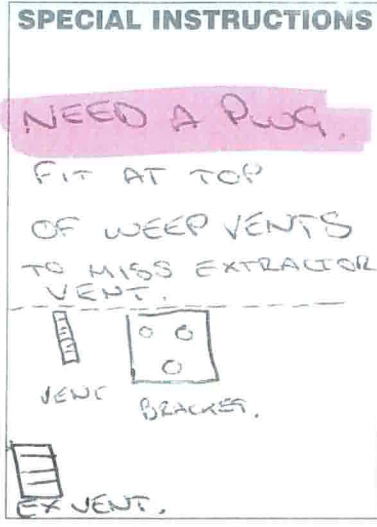 SPECIAL INSTRUCTIONS
NEED A PLUG.
FIT AT TOP
OF WEEP VENTS
TO MISS EXTRACTOR
VENT.
VENT
BRACKET.
EX VENT.